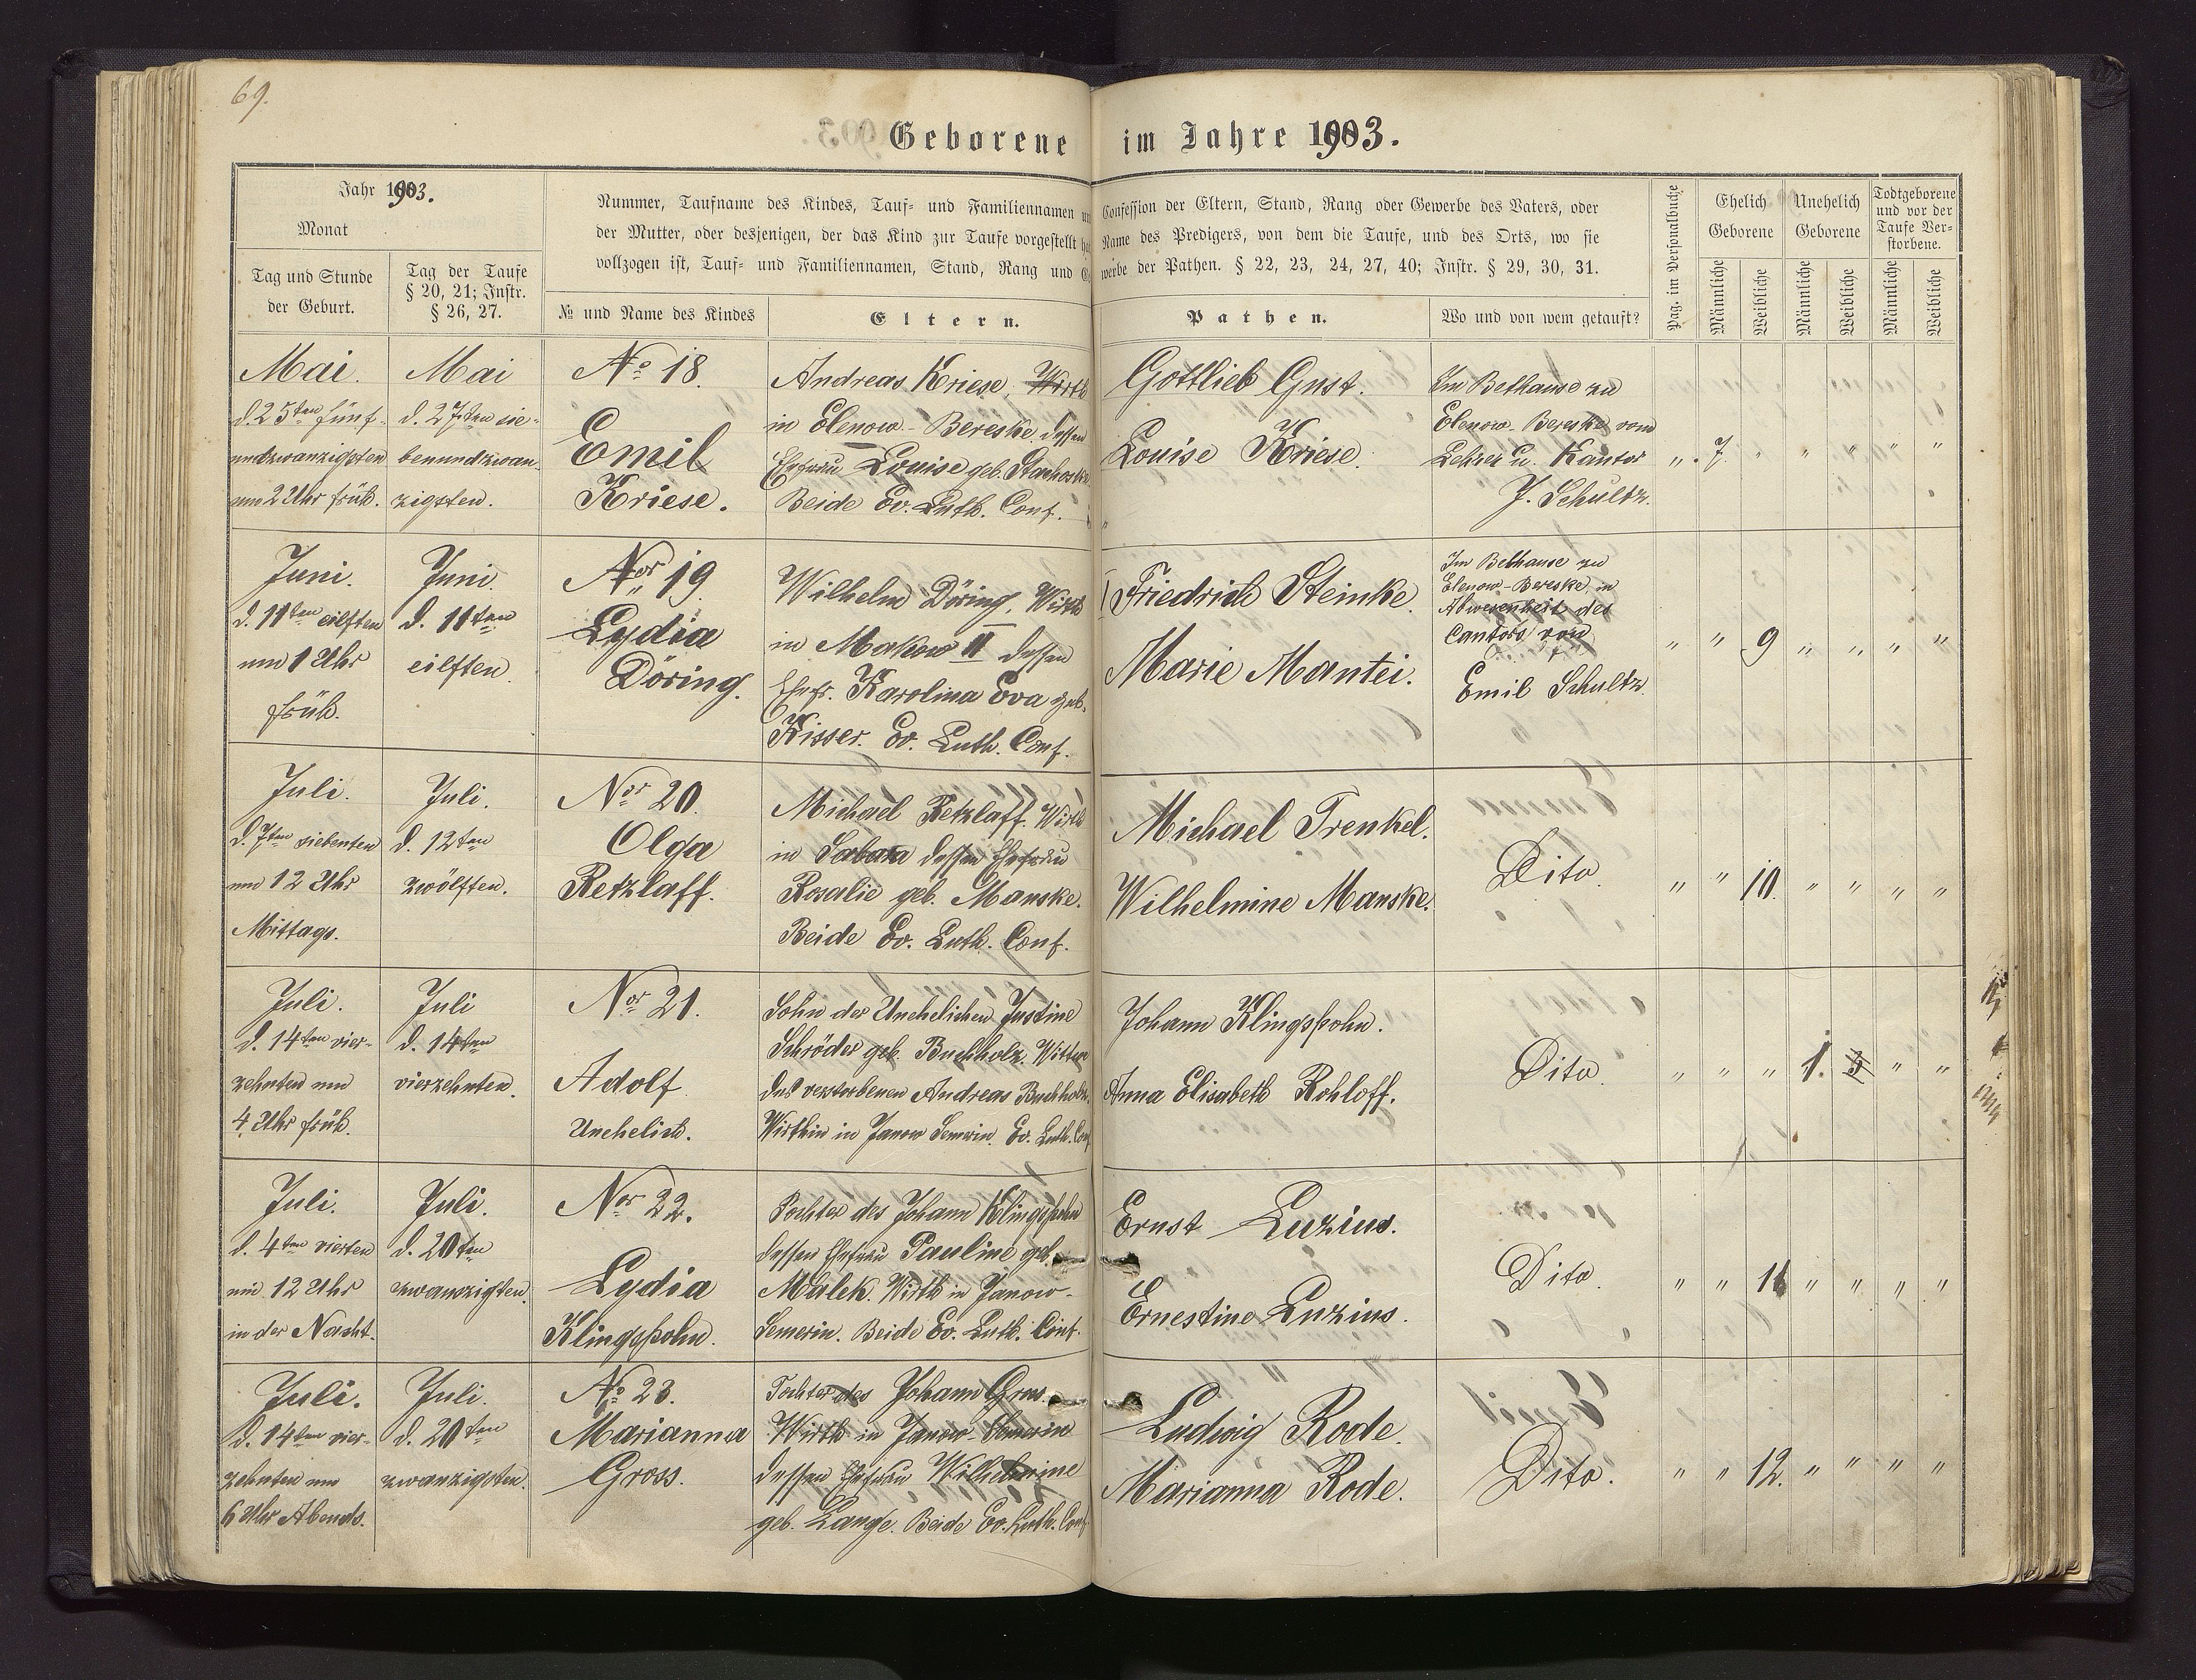 69.
Geborene im Jahre 1903.
Jahr 1903.
Monat
Tag und Stunde
der Geburt.
Tag der Taufe
§ 20, 21; Instr.
§ 26, 27.
Nummer, Taufname des Kindes, Tauf- und Familiennamen un
der Mutter, oder desjenigen, der das Kind zur Taufe vorgestellt
vollzogen ist, Tauf- und Familiennamen, Stand, Rang und Ge
№ und Name des Kindes
Eltern.
Confession der Eltern, Stand, Rang oder Gewerbe des Vaters, oder
Name des Predigers, von dem die Taufe, und des Orts, wo sie
werbe der Pathen. § 22, 23, 24, 27, 40; Instr. § 29, 30, 31.
Pathen.
Wo und von wem getauft?
Pag. im Personalbuche
Ehelich
Geborene
Unehelich
Geborene
Todtgeborene
und vor der
Taufe Ver-
storbene.
Männliche
Weibliche
Männliche
Weibliche
Männliche
Weibliche
Mai.
d. 25ten fünf-
undzwanzigsten
um 2 Uhr früh.
Mai
d. 27ten sie-
benundzwan-
zigsten.
No 18.
Emil
Kriese.
Andreas Kriese, Wirth
in Elenow-Bereske, dessen
Ehefrau Louise geb.
Beide Ev. Luth. Conf.
Gottlieb Gust.
Louise Kriese.
Im Bethause zu
Elenow-Bereske vom
Lehrer u. Kantor
J. Schultz.
" 7 " " " " "
Juni.
d. 11ten eilften
um 1 Uhr
früh.
Juni.
d. 11ten
eilften.
Nor 19.
Lydia
Döring.
Wilhelm Döring, Wirth
in Makow II dessen
Ehefr. Karolina Eva geb.
Kisser. Ev. Luth. Conf.
Friedrich Steinke.
Marie Mantei.
Im Bethause zu
Elenow-Bereske, in
Abwesenheit des
Cantors von
Emil Schultz.
" " 9 " " " "
Juli.
d. 7ten siebenten
um 12 Uhr
Mittags.
Juli.
d. 12ten
zwölften.
Nor 20.
Olga
Retzlaff.
Michael Retzlaff. Wirth
in dessen Ehefrau
Rosalie geb. Manske.
Beide Ev. Luth. Conf.
Michael Trenkel.
Wilhelmine Manske.
Dito.
" " 10. " " " "
Juli.
d. 14ten vier-
zehnten um
4 Uhr früh.
Juli
d. 14ten
vierzehnten.
Nor 21.
Adolf
Unehelich.
Sohn der Unehelichen Justine
Schröder geb. Buchholz. Wittwe
des verstorbenen Andreas Buchholz.
Wirthin in Janow Semerin. Ev. Luth. Conf
Johann Klingspohn.
Anna Elisabeth Rohloff.
Dito.
" " " 1. 3 " "
Juli.
d. 4ten vierten
um 12 Uhr
in der Nacht.
Juli.
d. 20ten
zwanzigsten.
Nor 22.
Lydia
Klingspohn.
Tochter des Johann Klingspohn
dessen Ehefrau Pauline geb.
Malek. Wirth in Janow-
Semerin. Beide Ev. Luth. Conf.
Ernst Luzius.
Ernestine Luzius.
Dito.
" " 11 " " " "
Juli.
d. 14ten vier-
zehnten um
6 Uhr Abends.
Juli.
d. 20ten
zwanzigsten.
No 23.
Marianna
Gross.
Tochter des Johann Gross.
Wirth in Janow-Semerin
dessen Ehefrau Wilhelmine
geb. Lange. Beide Ev. Luth. Conf
Ludwig Rode.
Marianna Rode.
Dito.
" " 12. " " " "